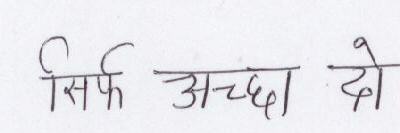 सिर्फ अच्छा दो